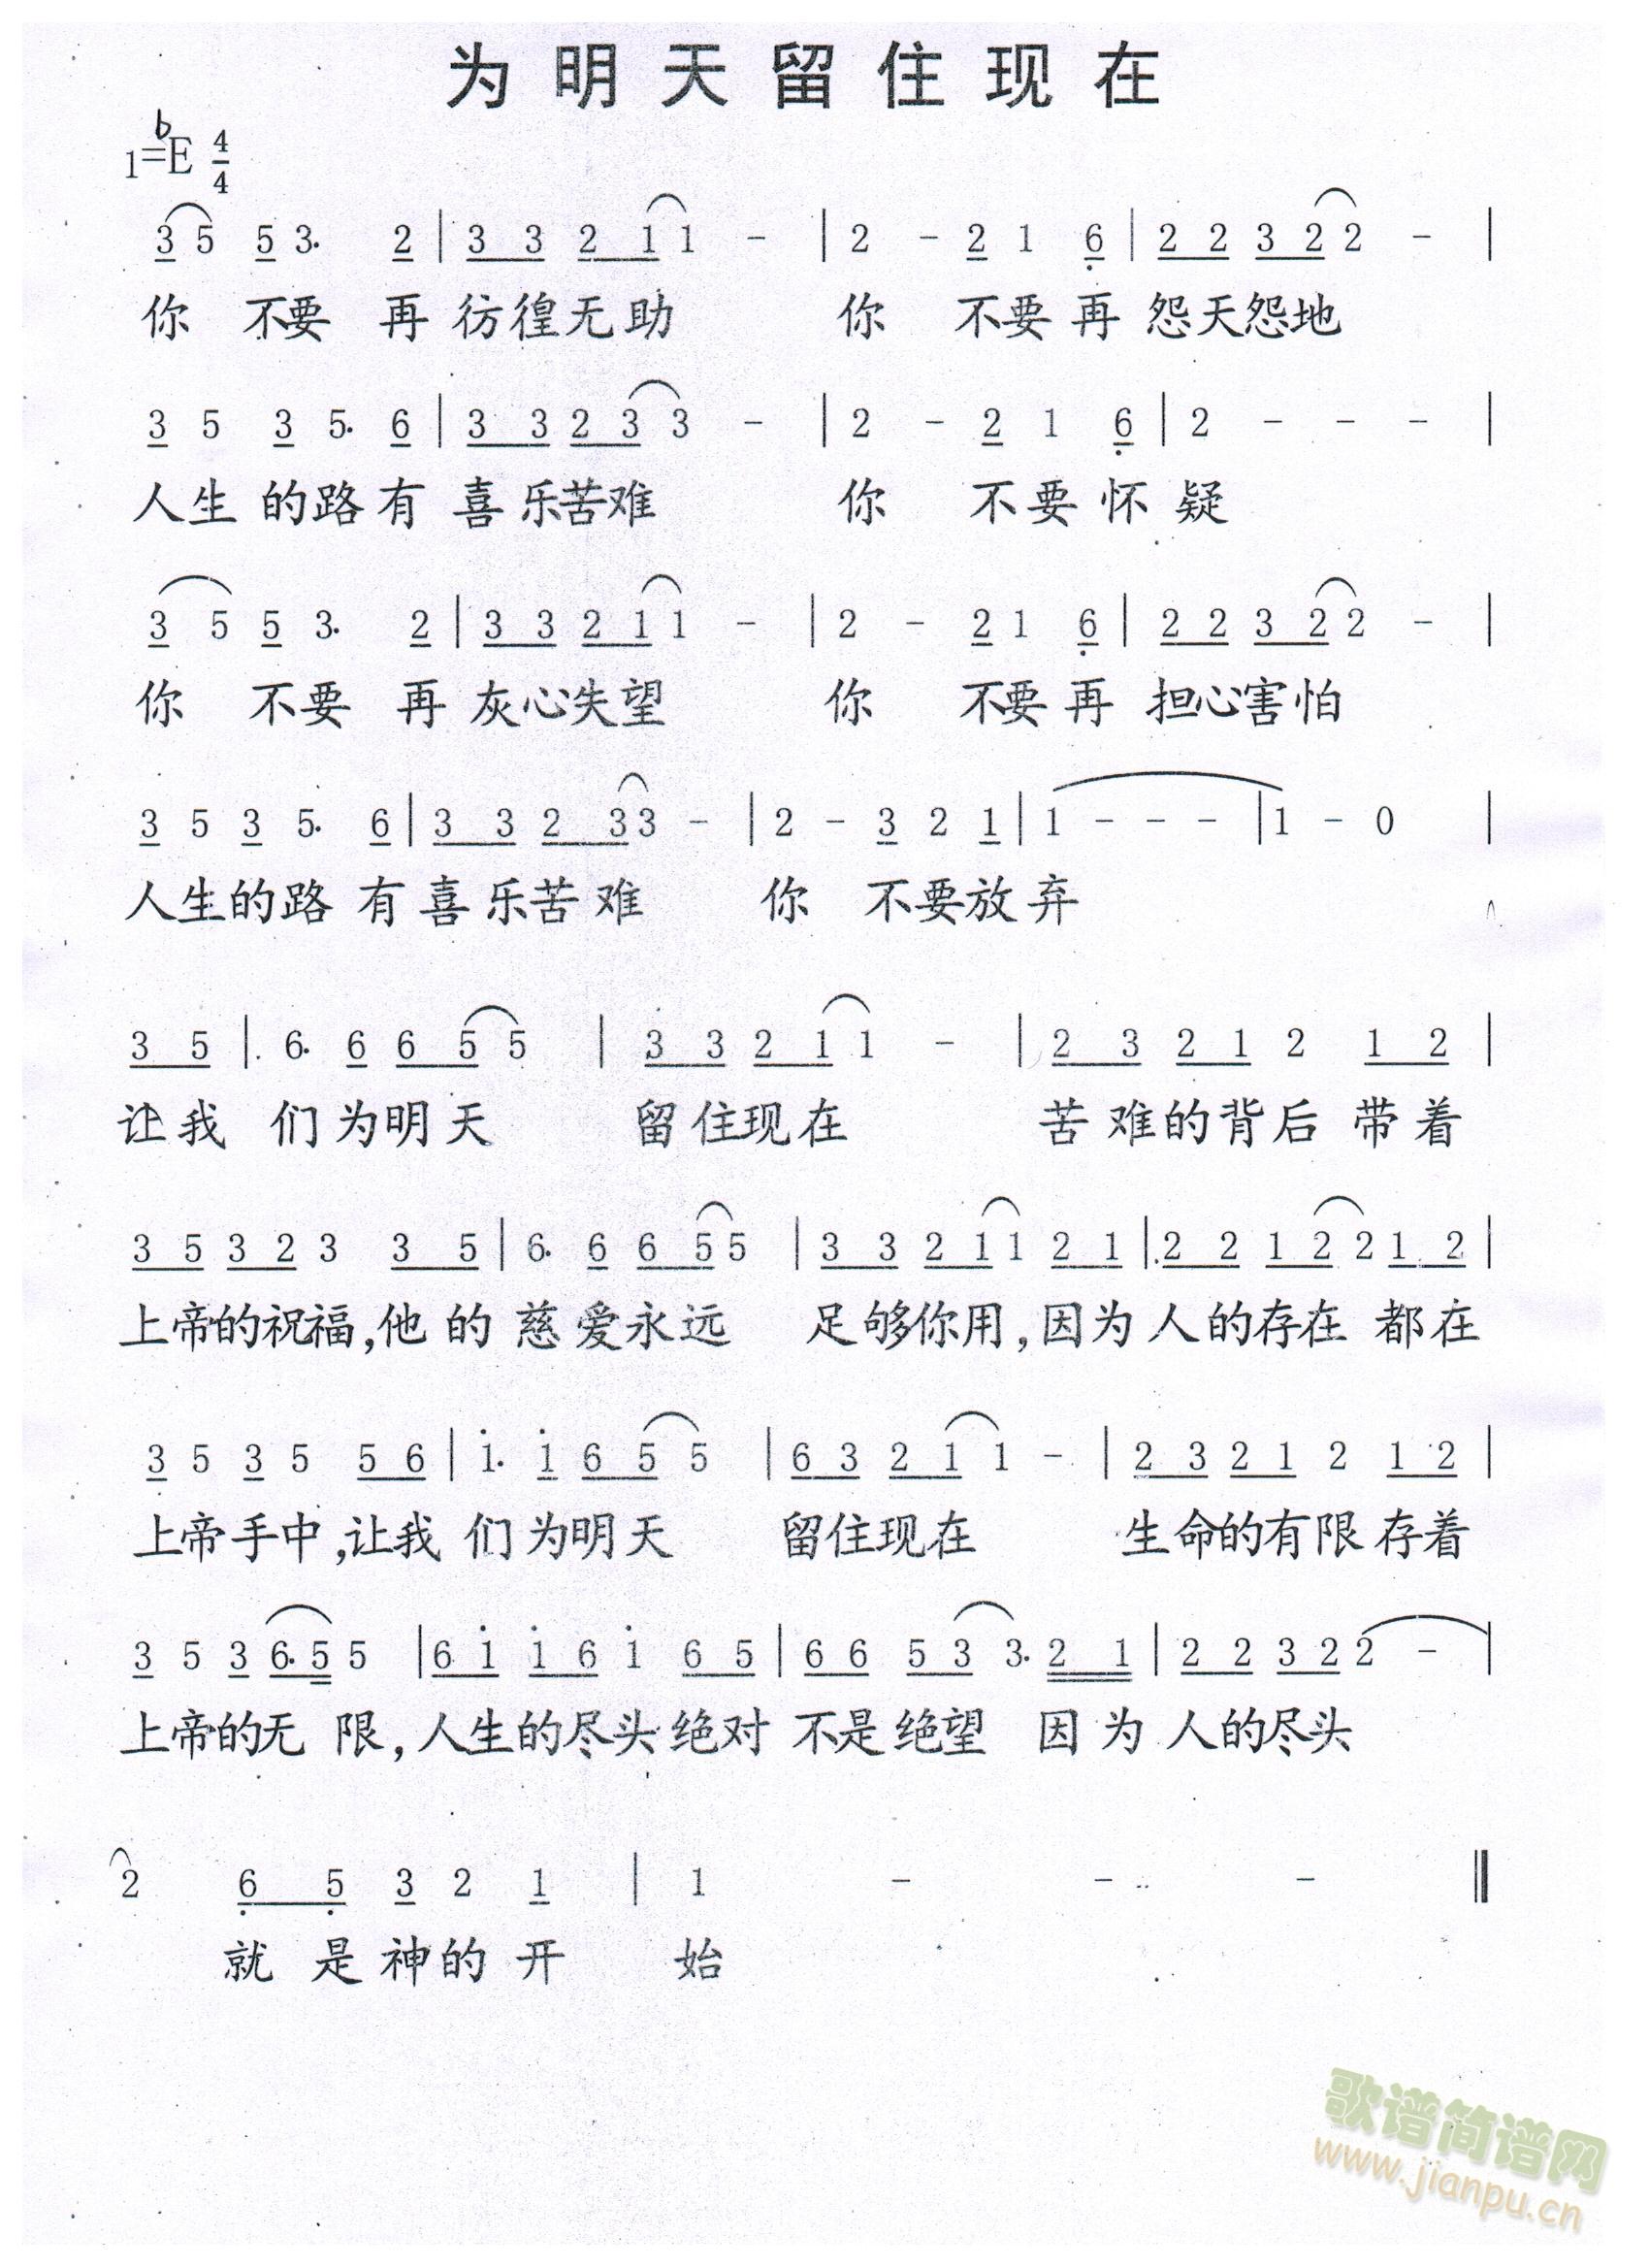 为明天留住现在
1=bE 4/4
3 5 5 3. 2 | 3 3 2 1 1 - | 2 - 2 1 6 | 2 2 3 2 2 - |
你 不要 再 彷徨无助 你 不要再 怨天怨地
3 5 3 5. 6 | 3 3 2 3 3 - | 2 - 2 1 6 | 2 - - - |
人生 的路有 喜乐苦难 你 不要怀疑
3 5 5 3. 2 | 3 3 2 1 1 - | 2 - 2 1 6 | 2 2 3 2 2 - |
你 不要 再 灰心失望 你 不要再 担心害怕
3 5 3 5. 6 | 3 3 2 3 3 - | 2 - 3 2 1 | 1 - - - | 1 - 0 |
人生的路 有喜乐苦难 你 不要放弃
3 5 | 6. 6 6 5 5 | 3 3 2 1 1 - | 2 3 2 1 2 1 2 |
让我 们为明天 留住现在 苦难的背后 带着
3 5 3 2 3 3 5 | 6. 6 6 5 5 | 3 3 2 1 1 2 1 | 2 2 1 2 2 1 2 |
上帝的祝福,他的 慈爱永远 足够你用,因为人的存在 都在
3 5 3 5 5 6 | 1. 1 6 5 5 | 6 3 2 1 1 - | 2 3 2 1 2 1 2 |
上帝手中,让我 们为明天 留住现在 生命的有限存着
3 5 3 6. 5 5 | 6 1 1 6 1 6 5 | 6 6 5 3 3. 2 1 | 2 2 3 2 2 - |
上帝的无 限,人生的尽头绝对 不是绝望 因为 人的尽头
2 6 5 3 2 1 | 1 - - - ‖
就是神的开 始
歌谱简谱网
www.jianpu.cn